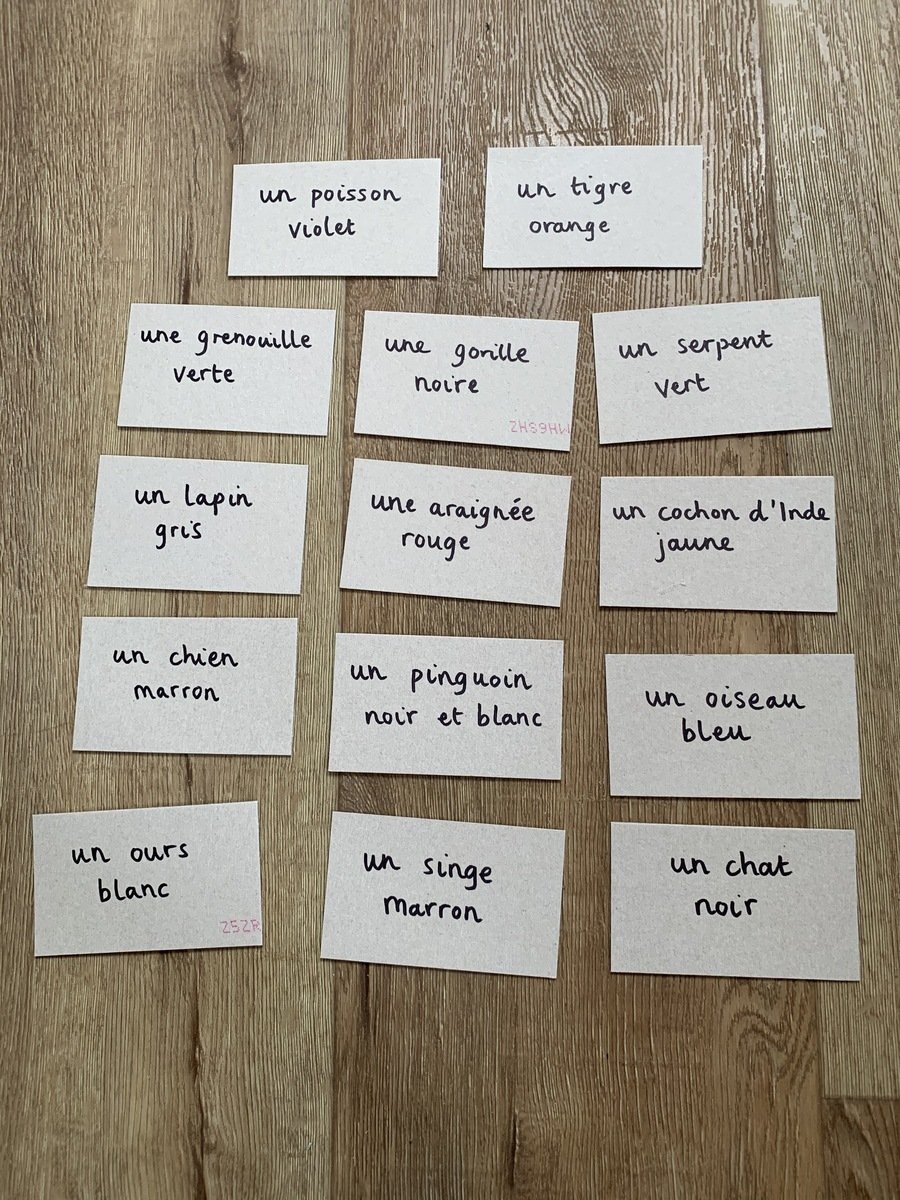 un poisson
violet
un tigre
orange
une grenouille
verte
une gorille
noire
MH6SHZ
un serpent
vert
un lapin
gris
une araignée
rouge
un cochon d'Inde
jaune
un chien
marron
un pinguoin
noir et blanc
un oiseau
bleu
un ours
blanc
Z5ZR
un singe
marron
un chat
noir